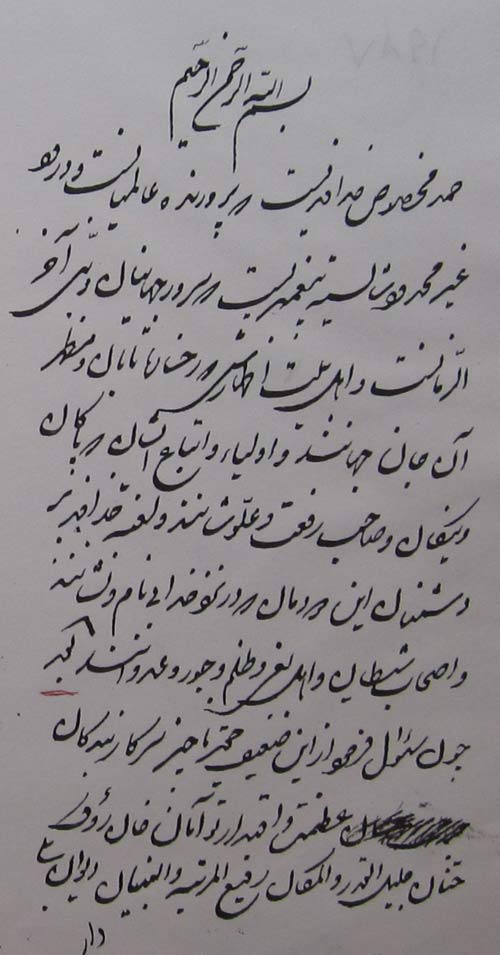 بسم الله الرحمن الرحیم
حمد مخصوص خداوندیست که پرورنده عالمیانست و درود
غیر محدود شایسته پیغمبریست که سرور جهانیان و نبی آخر
الزمانست و اهل بیت اطهارش که رخسار تابان و مظهر
آن جان جهانند و اولیاء و اتباع ایشان که پاکان
و نیکان و صاحب رفعت و علو شانند و لعنت خداوند بر
دشمنان این مردمان که در نزد خدا بی نام و نشانند
و اصحاب شیطان و اهل بغی و ظلم و جور و عدوانند
چون سئوال فرمود از این ضعیف حقیر ناچیز سرکار بندگان
عظمت و اقتدار توأمان خان رؤف
حنان جلیل القدر و المکان رفیع المرتبه و البنیان
دار